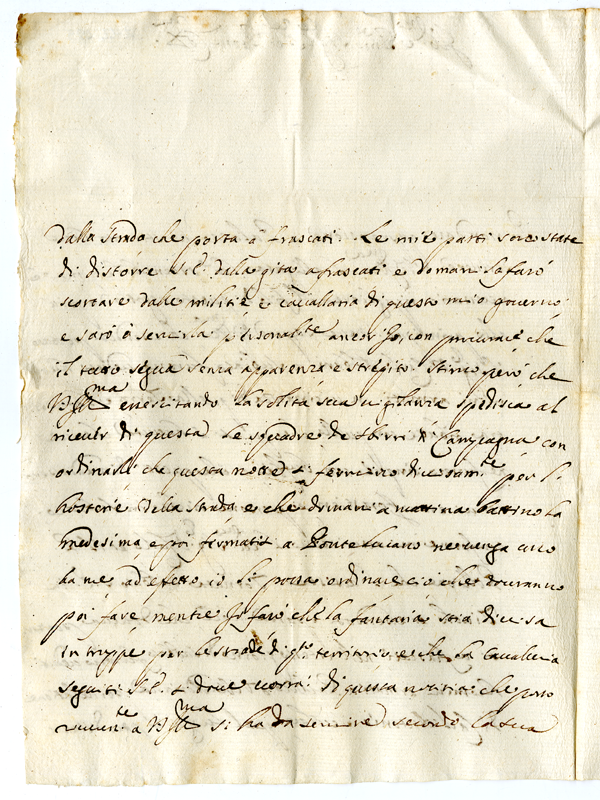 dalla strada che porta a frascati. Le mie parti sono state
di distorre S. E. dalla gita a frascati e domani la farò
scortare dalle militie e cavallaria di questo mio governo
e sarò a servirla p̱sonalte ancor Io, con procurare che
il tutto segua senza apparenza e strepito. Stimo però che
VSIllma essercitando la solita sua vigilanza spedisca al
ricever di questa le squadre de sbirri di Campagna con
ordinarli che questa notte si fermino divisamte per l'
hosterie della strada e che domani a mattina battino la
medesima, e poi fermatisi a Ponte Lucano ne venga uno
da me ad effetto, io li possa ordinare ciò che dovranno
poi fare, mentre Io farò che la fantaria stia divisa
in truppe per le strade di qto territorio e che la Cavalleria
seguiti S. E. dove vorrà. di questa notitia che porto
a VSIllma si ha da servire secondo la sua